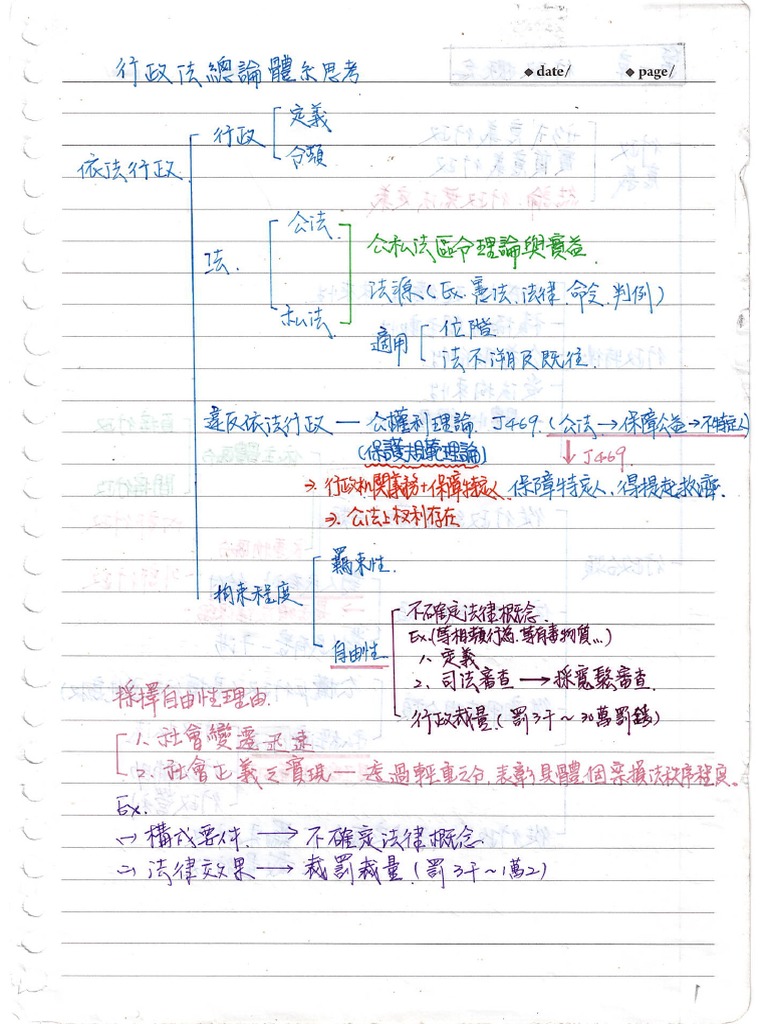 行政法總論體系思考
◆ date/ ◆ page/
依法行政
行政
定義
分類
法
公法
私法
公私法區分理論與實益
法源(Ex. 憲法、法律、命令、判例)
適用
位階
法不溯及既往
違反依法行政 — 公權利理論. J469. (公法→保障公益→不特定人)
(保護規範理論)
↓ J469.
⇒ 行政機關義務+保障特定人 保障特定人、得提起救濟
⇒ 公法上權利存在
拘束程度
羈束性
自由性
不確定法律概念
Ex.(等相類行為、等有毒物質...)
1、定義
2、司法審查 → 採寬鬆審查.
行政裁量.(罰3千~30萬罰鍰)
採擇自由性理由.
1、社會變遷迅速
2、社會正義之實現 — 透過輕重之分,表彰具體個案損法秩序程度。
Ex.
(一) 構成要件. → 不確定法律概念
(二) 法律效果 → 裁罰裁量.(罰3千~1萬2)
1